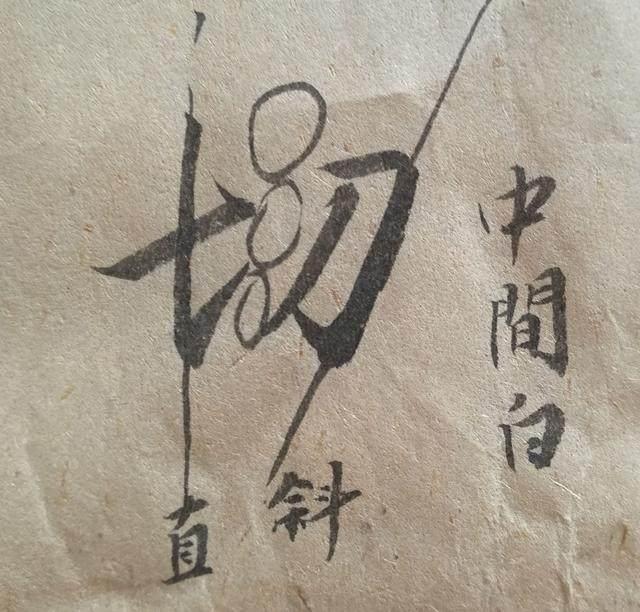 切
中間白
直
斜